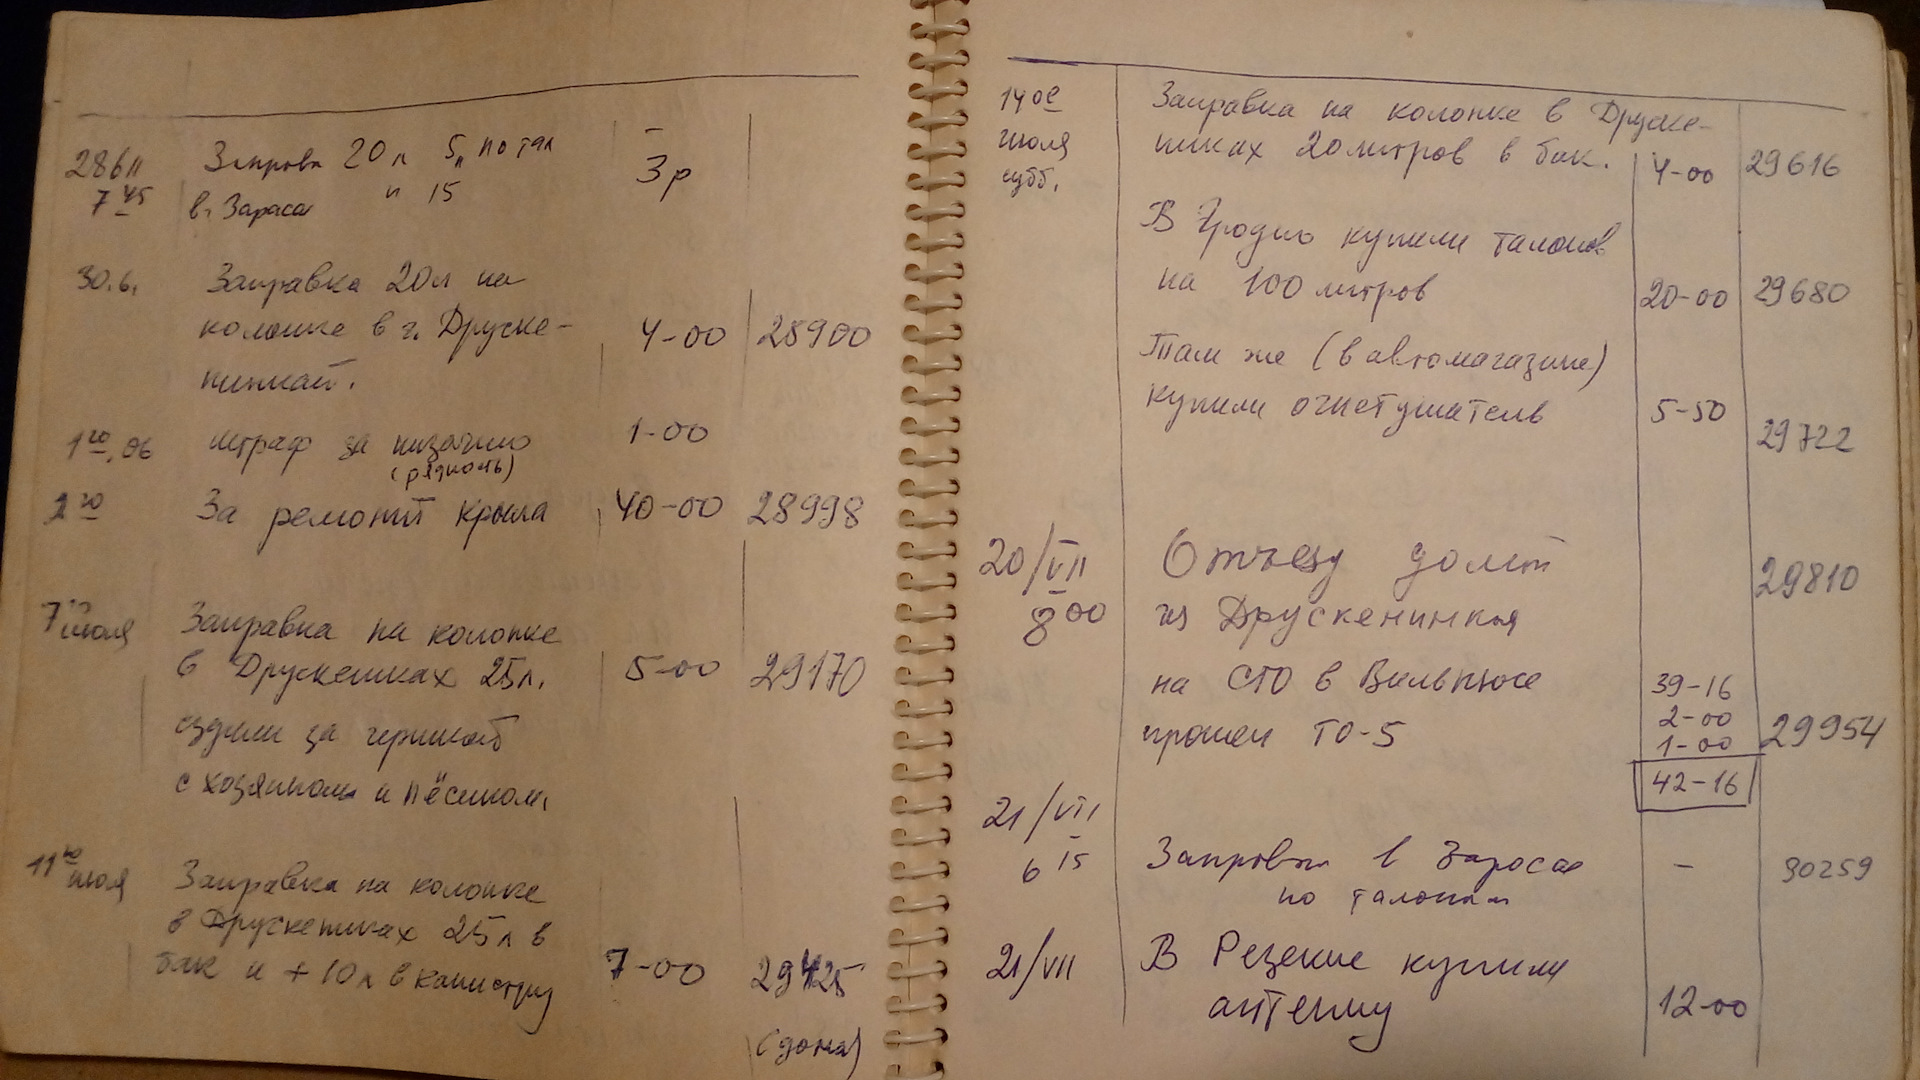 286
7 45
Заправка 20 л 5 л по тал
в г. Зараса и 15
3 р
30.6.
Заправка 20 л на
колонке в г. Друске-
нинкай.
4-00 28900
1го, 06
штраф за
(рядность)
1-00
2го
За ремонт крыла
40-00 28998
7го июля
Заправка на колонке
в Друскениках 25 л.
ездили за черникой
с хозяином и пёсиком.
5-00 29170
11го июля
Заправка на колонке
в Друскениках 25 л в
бак и + 10 л в канистру
7-00 29425
(дома)
14ое
июля
субб.
Заправка на колонке в Друске-
никах 20 литров в бак.
4-00 29616
В Гродно купили талонов
на 100 литров
20-00 29680
Там же (в автомагазине)
купили огнетушитель
5-50
29722
20/VII
8 00
Отъезд домой
из Друскенинкая
29810
на СТО в Вильнюсе
прошел ТО-5
39-16
2-00
1-00
29954
42-16
21/VII
6 15
Заправка в Зарасае
по талонам
- 30259
21/VII
В Резекне купили
антенну
12-00